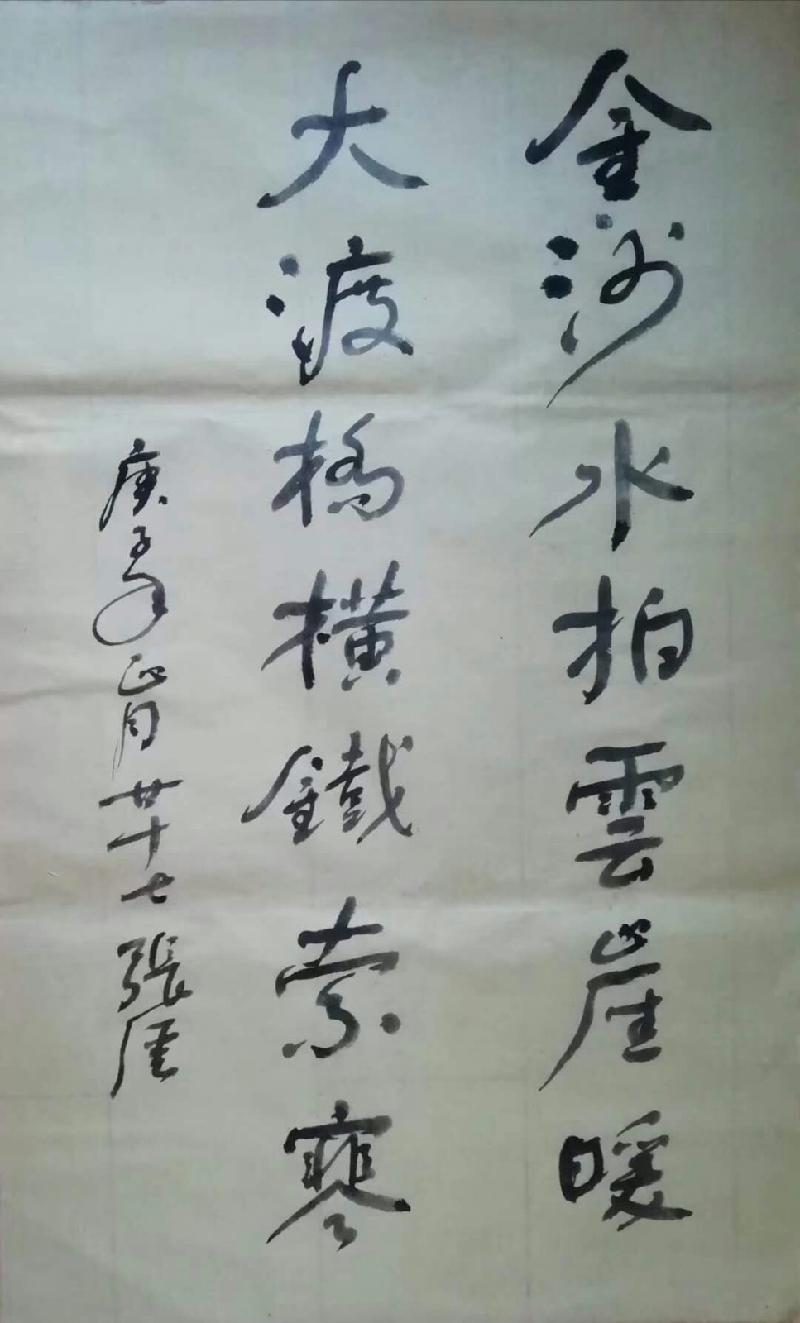 金沙水拍雲崖暖
大渡橋橫鐵索寒
庚子年正月廿十七張厓